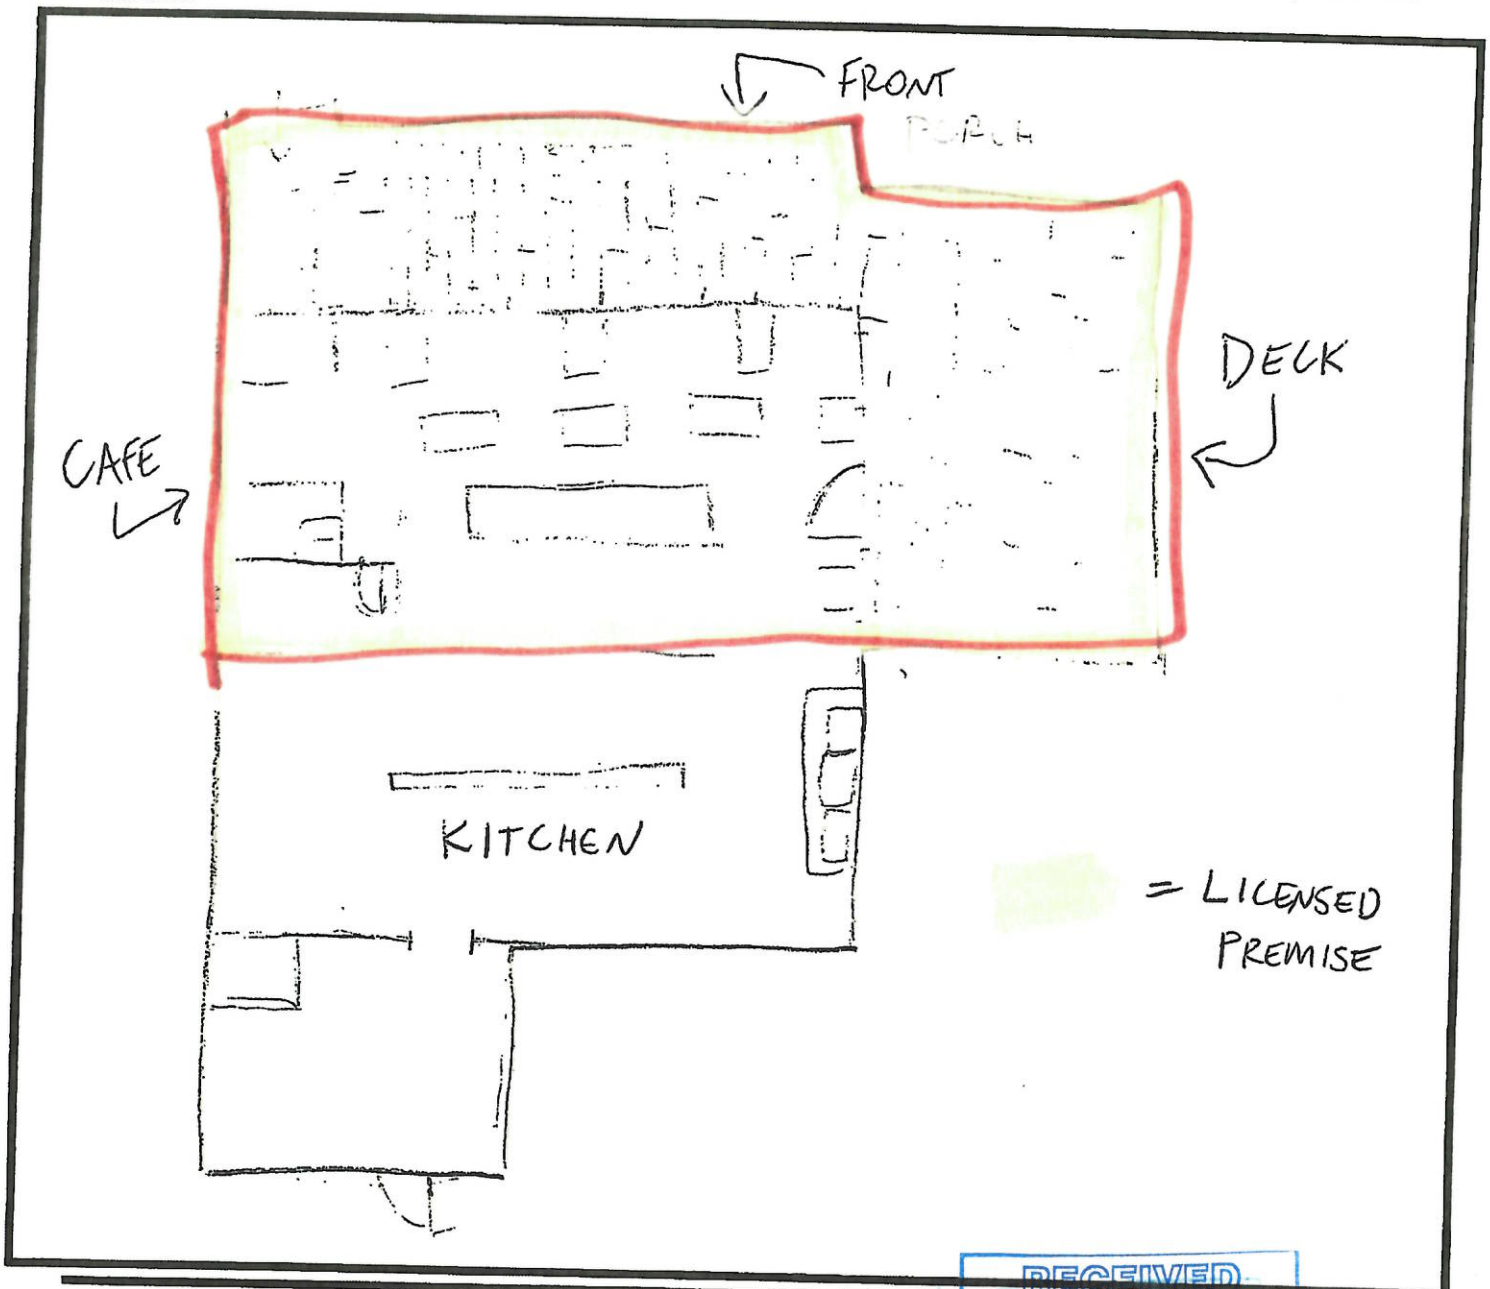 FRONT
PORCH
DECK
CAFE
KITCHEN
= LICENSED
PREMISE
RECEIVED